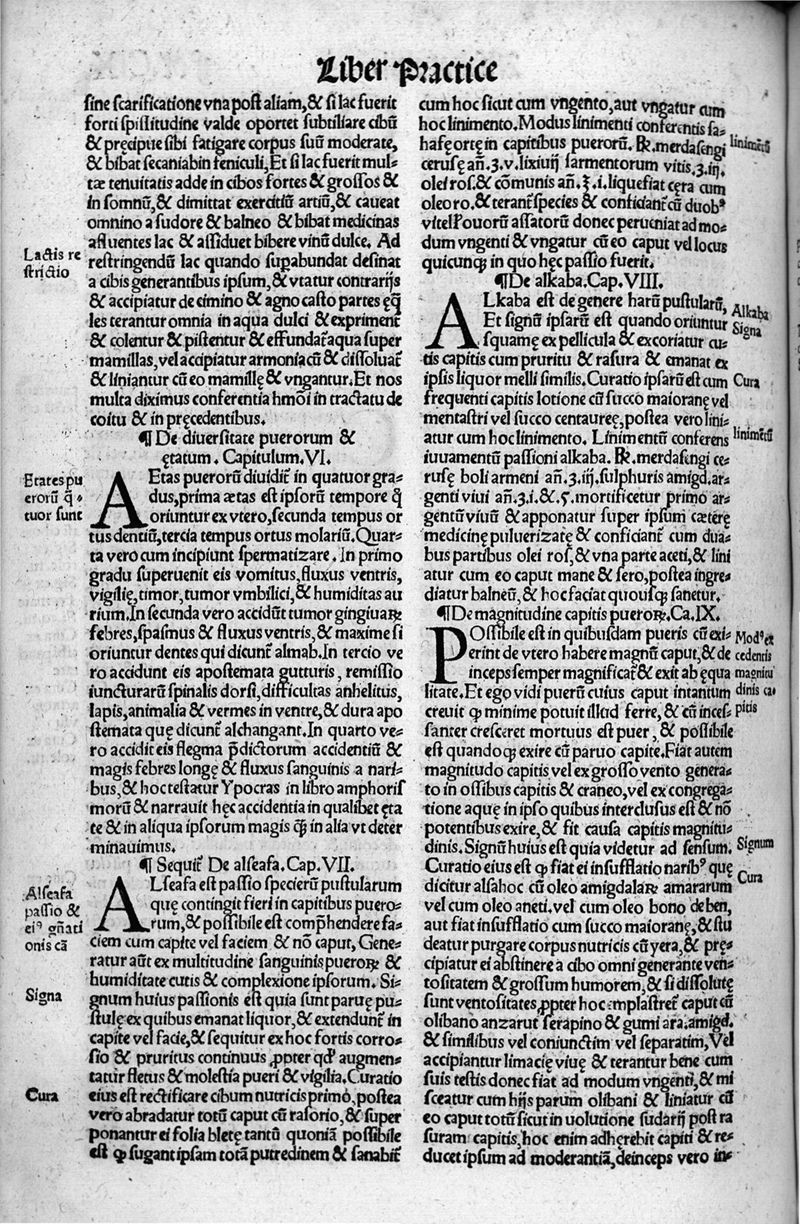 Liber Practice
sine scarificatione vna post aliam, & si lac fuerit
forti spissitudine valde oportet subtiliare cibū
& pręcipue sibi fatigare corpus suū moderate,
& bibat secaniabin feniculi, Et si lac fuerit mul-
tæ tenuitatis adde in cibos fortes & grossos &
in somnū, & dimittat exercitiū artiū, & caueat
omnino a sudore & balneo & bibat medicinas
afluentes lac & assiduet bibere vinū dulce. Ad
restringendū lac quando supabundat desinat
a cibis generantibus ipsum, & vtatur contrarijs
& accipiatur de cimino & agno casto partes ęq̄
les terantur omnia in aqua dulci & exprimenť
& colentur & pistentur & effundať aqua super
mamillas, vel accipiatur armoniacū & dissoluať
& liniantur cū eo mamillę & vngantur. Et nos
multa diximus conferentia hmōi in tractatu de
coitu & in pręcedentibus.
Lactis re
strictio
¶ De diuersitate puerorum &
ętatum. Capitulum. VI.
AEtas puerorū diuidiť in quatuor gra-
dus, prima ætas est ipsorū tempore q̄
oriuntur ex vtero, secunda tempus or
tus dentiū, tercia tempus ortus molariū. Quar-
ta vero cum incipiunt spermatizare. In primo
gradu superuenit eis vomitus, fluxus ventris,
vigilię, timor, tumor vmbilici, & humiditas au
rium. In secunda vero accidūt tumor gingiuaꝝ
febres, spasmus & fluxus ventris, & maxime si
oriuntur dentes qui dicunť almab. In tercio ve
ro accidunt eis apostemata gutturis, remissio
iuncturarū spinalis dorsi, difficultas anhelitus,
lapis, animalia & vermes in ventre, & dura apo
stemata quę dicunť alchangant. In quarto ve-
ro accidit eis flegma p̄dictorum accidentiū &
magis febres longę & fluxus sanguinis a nari-
bus, & hoc testatur Ypocras in libro amphoris
morū & narrauit hęc accidentia in qualibet ęta
te & in aliqua ipsorum magis q̄ꝫ in alia vt deter
minauimus.
Etates pu
erorū q̄-
tuor sunt
¶ Sequiť De alseafa. Cap. VII.
ALseafa est passio specierū pustularum
quę contingit fieri in capitibus puero-
rum, & possibile est comp̄hendere fa-
ciem cum capite vel faciem & nō caput, Gene-
ratur aūt ex multitudine sanguinis pueroꝝ &
humiditate cutis & complexione ipsorum. Si-
gnum huius passionis est quia sunt paruę pu-
stulę ex quibus emanat liquor, & extendunť in
capite vel facie, & sequitur ex hoc fortis corro-
sio & pruritus continuus ꝓpter qđ augmen-
tatur fletus & molestia pueri & vigilia. Curatio
eius est rectificare cibum nutricis primo, postea
vero abradatur totū caput cū rasorio, & super
ponantur ei folia bletę tantū quoniā possibile
est ꝙ sugant ipsam totā putredinem & sanabiť
Alseafa
passio &
eiꝰ gn̄ati
onis cā
Signa
Cura
cum hoc sicut cum vngento, aut vngatur cum
hoc linimento. Modus linimenti conferentis sa-
hafę ortę in capitibus puerorū. ℞. merdasengi
cerusę añ. ʒ. v. lixiuij sarmentorum vitis. ʒ. iij.
olei ros. & cōmunis añ. ℥. i. liquefiat cęra cum
oleo ro. & teranť species & conficianť cū duobꝰ
vitell' ouorū assatorū donec perueniat ad mo-
dum vngenti & vngatur cū eo caput vel locus
quicunqꝫ in quo hęc passio fuerit.
linimētū
¶ De alkaba. Cap. VIII.
ALkaba est de genere harū pustularū,
Et signū ipsarū est quando oriuntur
squamę ex pellicula & excoriatur cu-
tis capitis cum pruritu & rasura & emanat ex
ipsis liquor melli similis. Curatio ipsarū est cum
frequenti capitis lotione cū succo maioranę vel
mentastri vel succo centaureę, postea vero lini-
atur cum hoc linimento. Linimentū conferens
iuuamentū passioni alkaba. ℞. merdasengi ce-
rusę boli armeni añ. ʒ. iij. sulphuris amigd. ar-
genti viui añ. ʒ. i. & .s. mortificetur primo ar-
gentū viuū & apponatur super ipsum cætere
medicinę puluerizatę & conficianť cum dua-
bus partibus olei ros. & vna parte aceti, & lini
atur cum eo caput mane & sero, postea ingre-
diatur balneū, & hoc faciat quousqꝫ sanetur.
Alkaba
Signa
Cura
linimētū
¶ De magnitudine capitis pueroꝝ. Ca. IX.
POssibile est in quibusdam pueris cū exi-
erint de vtero habere magnū caput, & de
inceps semper magnificať & exit ab ęqua
litate. Et ego vidi puerū cuius caput intantum
creuit ꝙ minime potuit illud ferre, & cū inces-
santer cresceret mortuus est puer, & possibile
est quandoqꝫ exire cū paruo capite. Fiat autem
magnitudo capitis vel ex grosso vento genera-
to in ossibus capitis & craneo, vel ex congrega-
tione aquę in ipso quibus interdusus est & nō
potentibus exire, & fit causa capitis magnitu-
dinis. Signū huius est quia videtur ad sensum.
Curatio eius est ꝙ fiat ei insufflatio naribꝰ quę
dicitur alsahoc cū oleo amigdalaꝝ amararum
vel cum oleo aneti. vel cum oleo bono de ben,
aut fiat insufflatio cum succo maioranę, & stu
deatur purgare corpus nutricis cū yera, & pręcipiatur ei abstinere a cibo omni generante ven-
tositatem & grossum humorem, & si dissolutę
sunt ventositates, ꝓpter hoc emplastreť caput cū
olibano anzarut serapino & gumi ara. amigd.
& similibus vel coniunctim vel separatim, Vel
accipiantur limacię viuę & terantur bene cum
suis testis donec fiat ad modum vngenti, & mi
sceatur cum hijs parum olibani & liniatur cū
eo caput totū sicut in uolutione sudarij post ra
suram capitis, hoc enim adhęrebit capiti & re-
ducet ipsum ad moderantiā, deinceps vero in-
Modꝰ et
cedentis
magnitu
dinis ca-
pitis
Signum
Cura